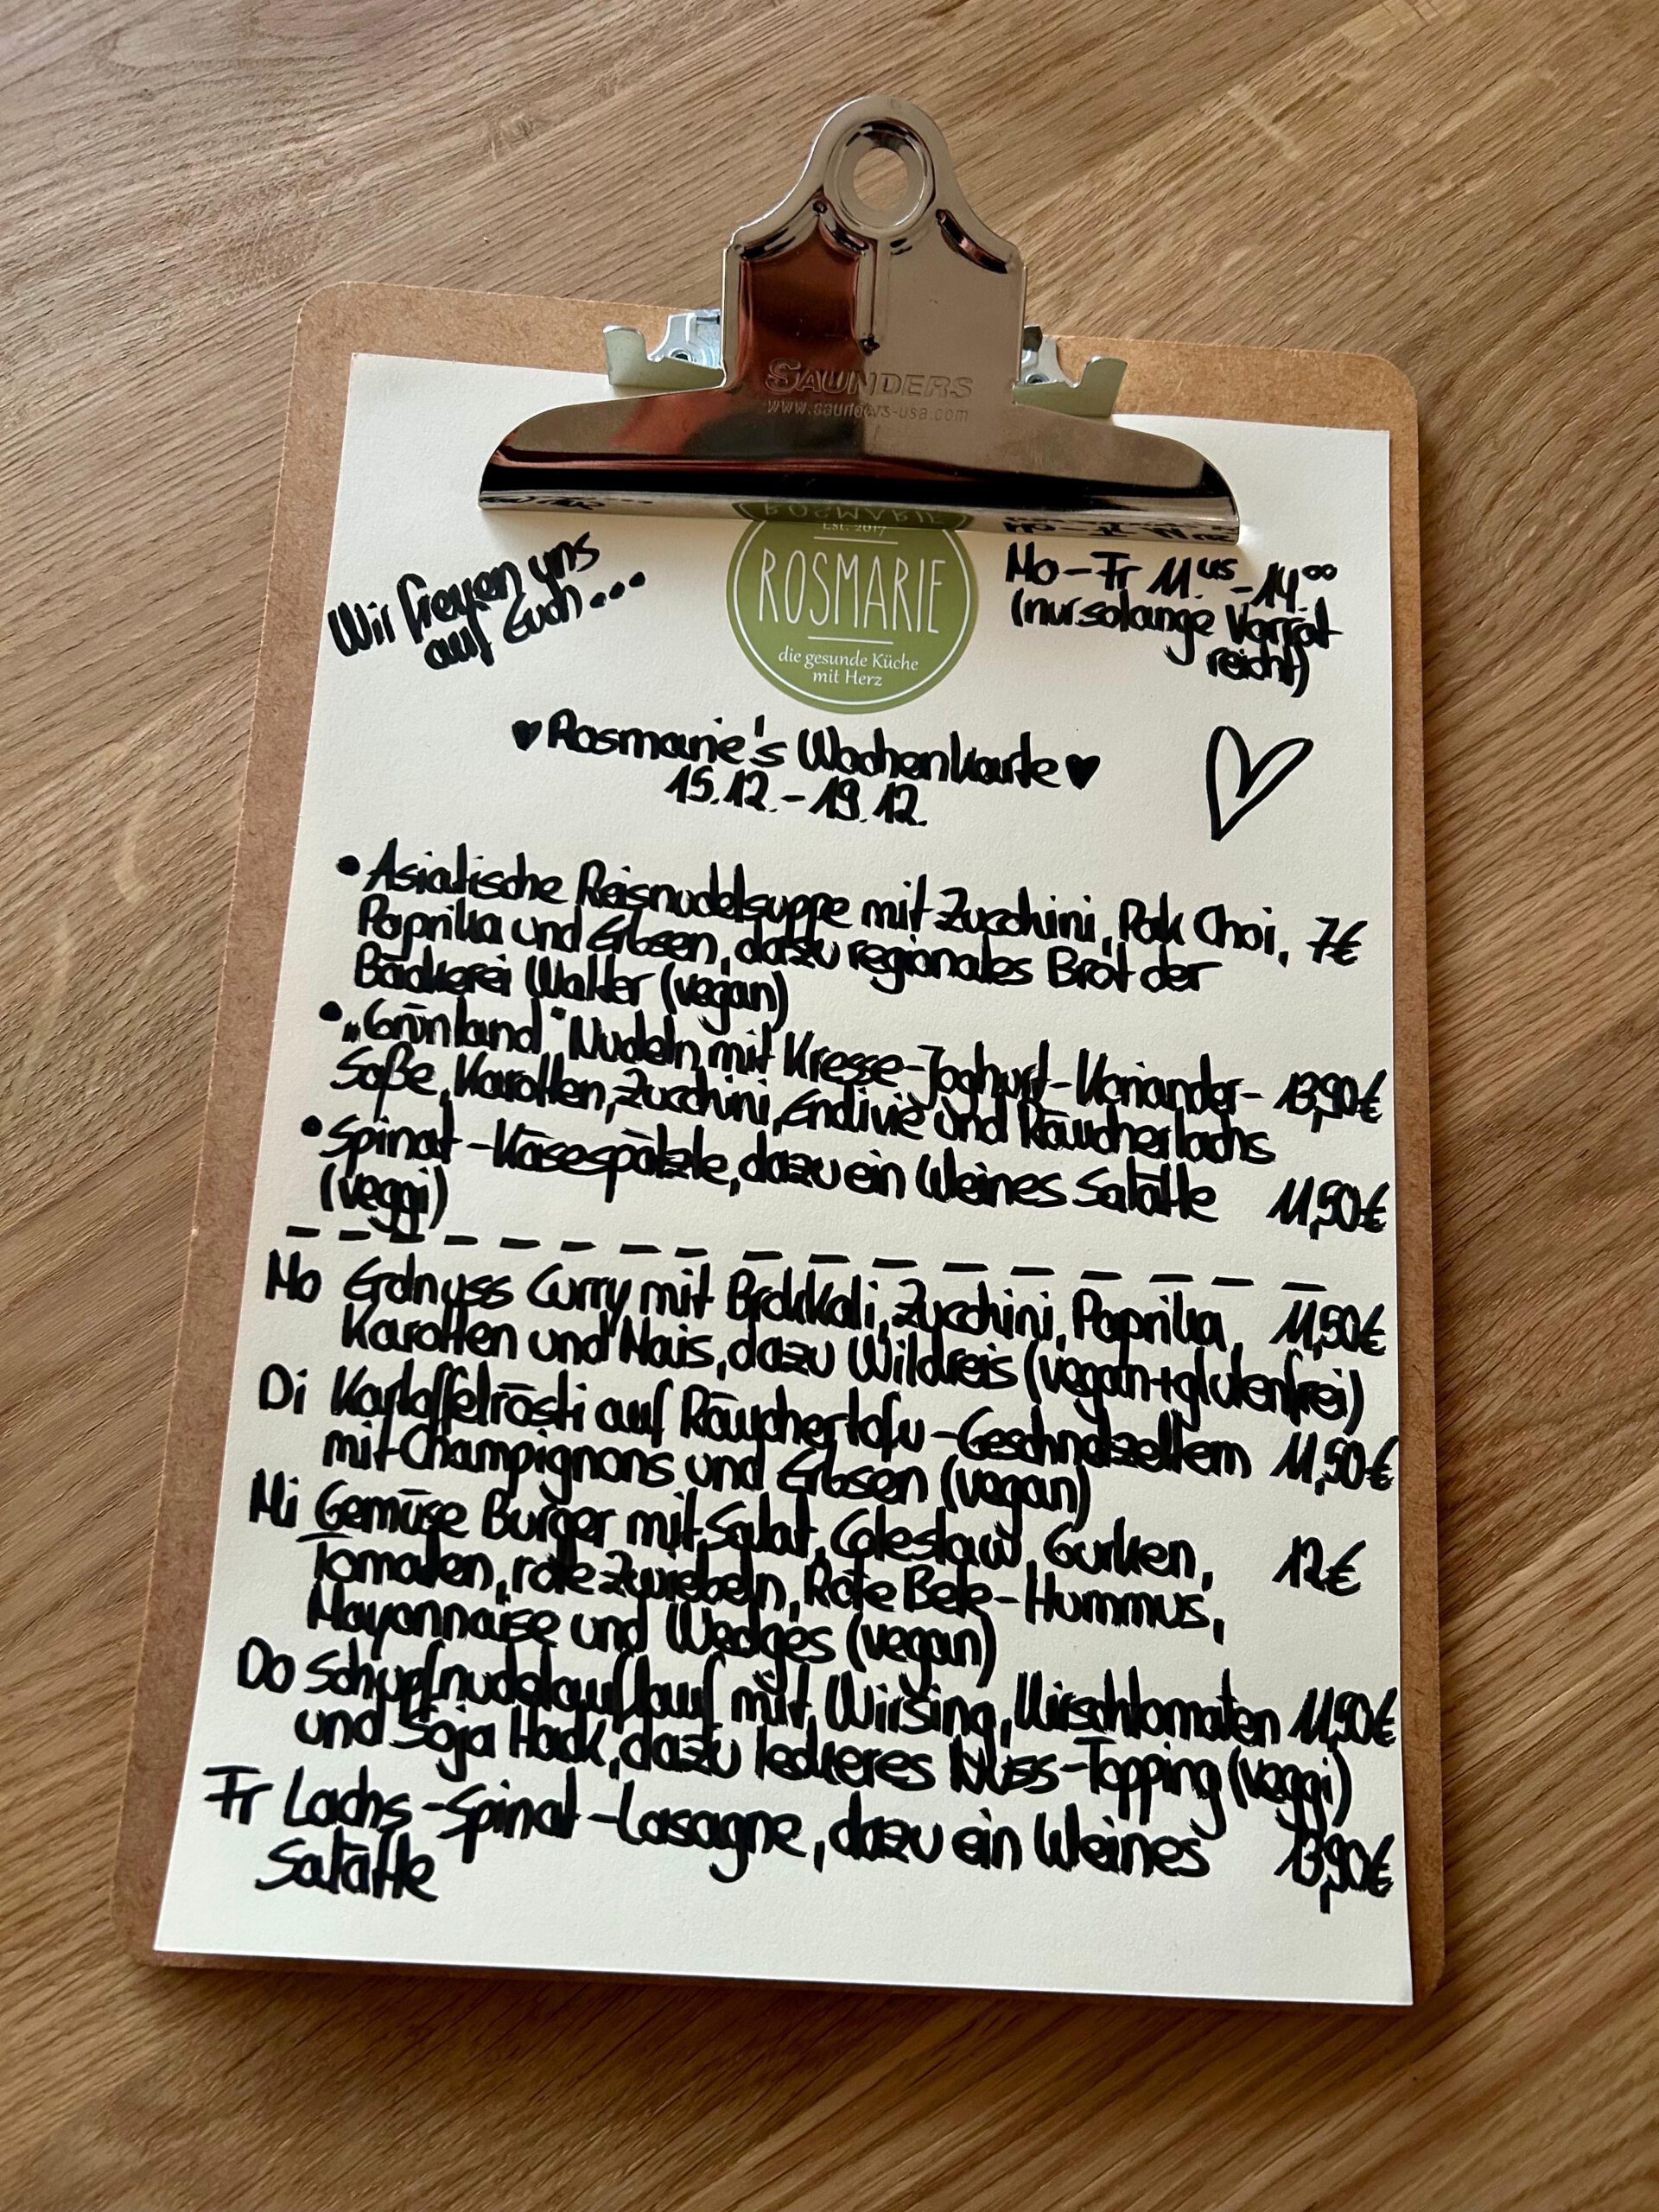 SAUNDERS
www.saunders-usa.com
Wir freuen uns
auf Euch...
EST. 2017
ROSMARIE
die gesunde Küche
mit Herz
Mo-Fr 11.45-14.00
(nur solange Vorrat
reicht)
♥Rosmarie's Wochenkarte♥
15.12.-19.12.
•Asiatische Reisnudelsuppe mit Zucchini, Pak Choi, 7€
Paprika und Erbsen, dazu regionales Brot der
Bäckerei Walter (vegan)
•„Grünland" Nudeln mit Kresse-Joghurt-Koriander- 13,90€
Soße, Karotten, Zucchini, Endivie und Räucherlachs
•Spinat-Käsespätzle, dazu ein kleines Salätle 11,50€
(veggi)
Mo Erdnuss Curry mit Brokkoli, Zucchini, Paprika, 11,50€
Karotten und Mais, dazu Wildreis (vegan+glutenfrei)
Di Kartoffelrösti auf Räuchertofu-Geschnetzeltem 11,50€
mit Champignons und Erbsen (vegan)
Mi Gemüse Burger mit Salat, Coleslaw, Gurken, 12€
Tomaten, rote Zwiebeln, Rote Bete-Hummus,
Mayonnaise und Wedges (vegan)
Do Schupfnudelauflauf mit Wirsing, Kirschtomaten 11,90€
und Soja Hack, dazu leckeres Nuss-Topping (veggi)
Fr Lachs-Spinat-Lasagne, dazu ein kleines 13,90€
Salätle